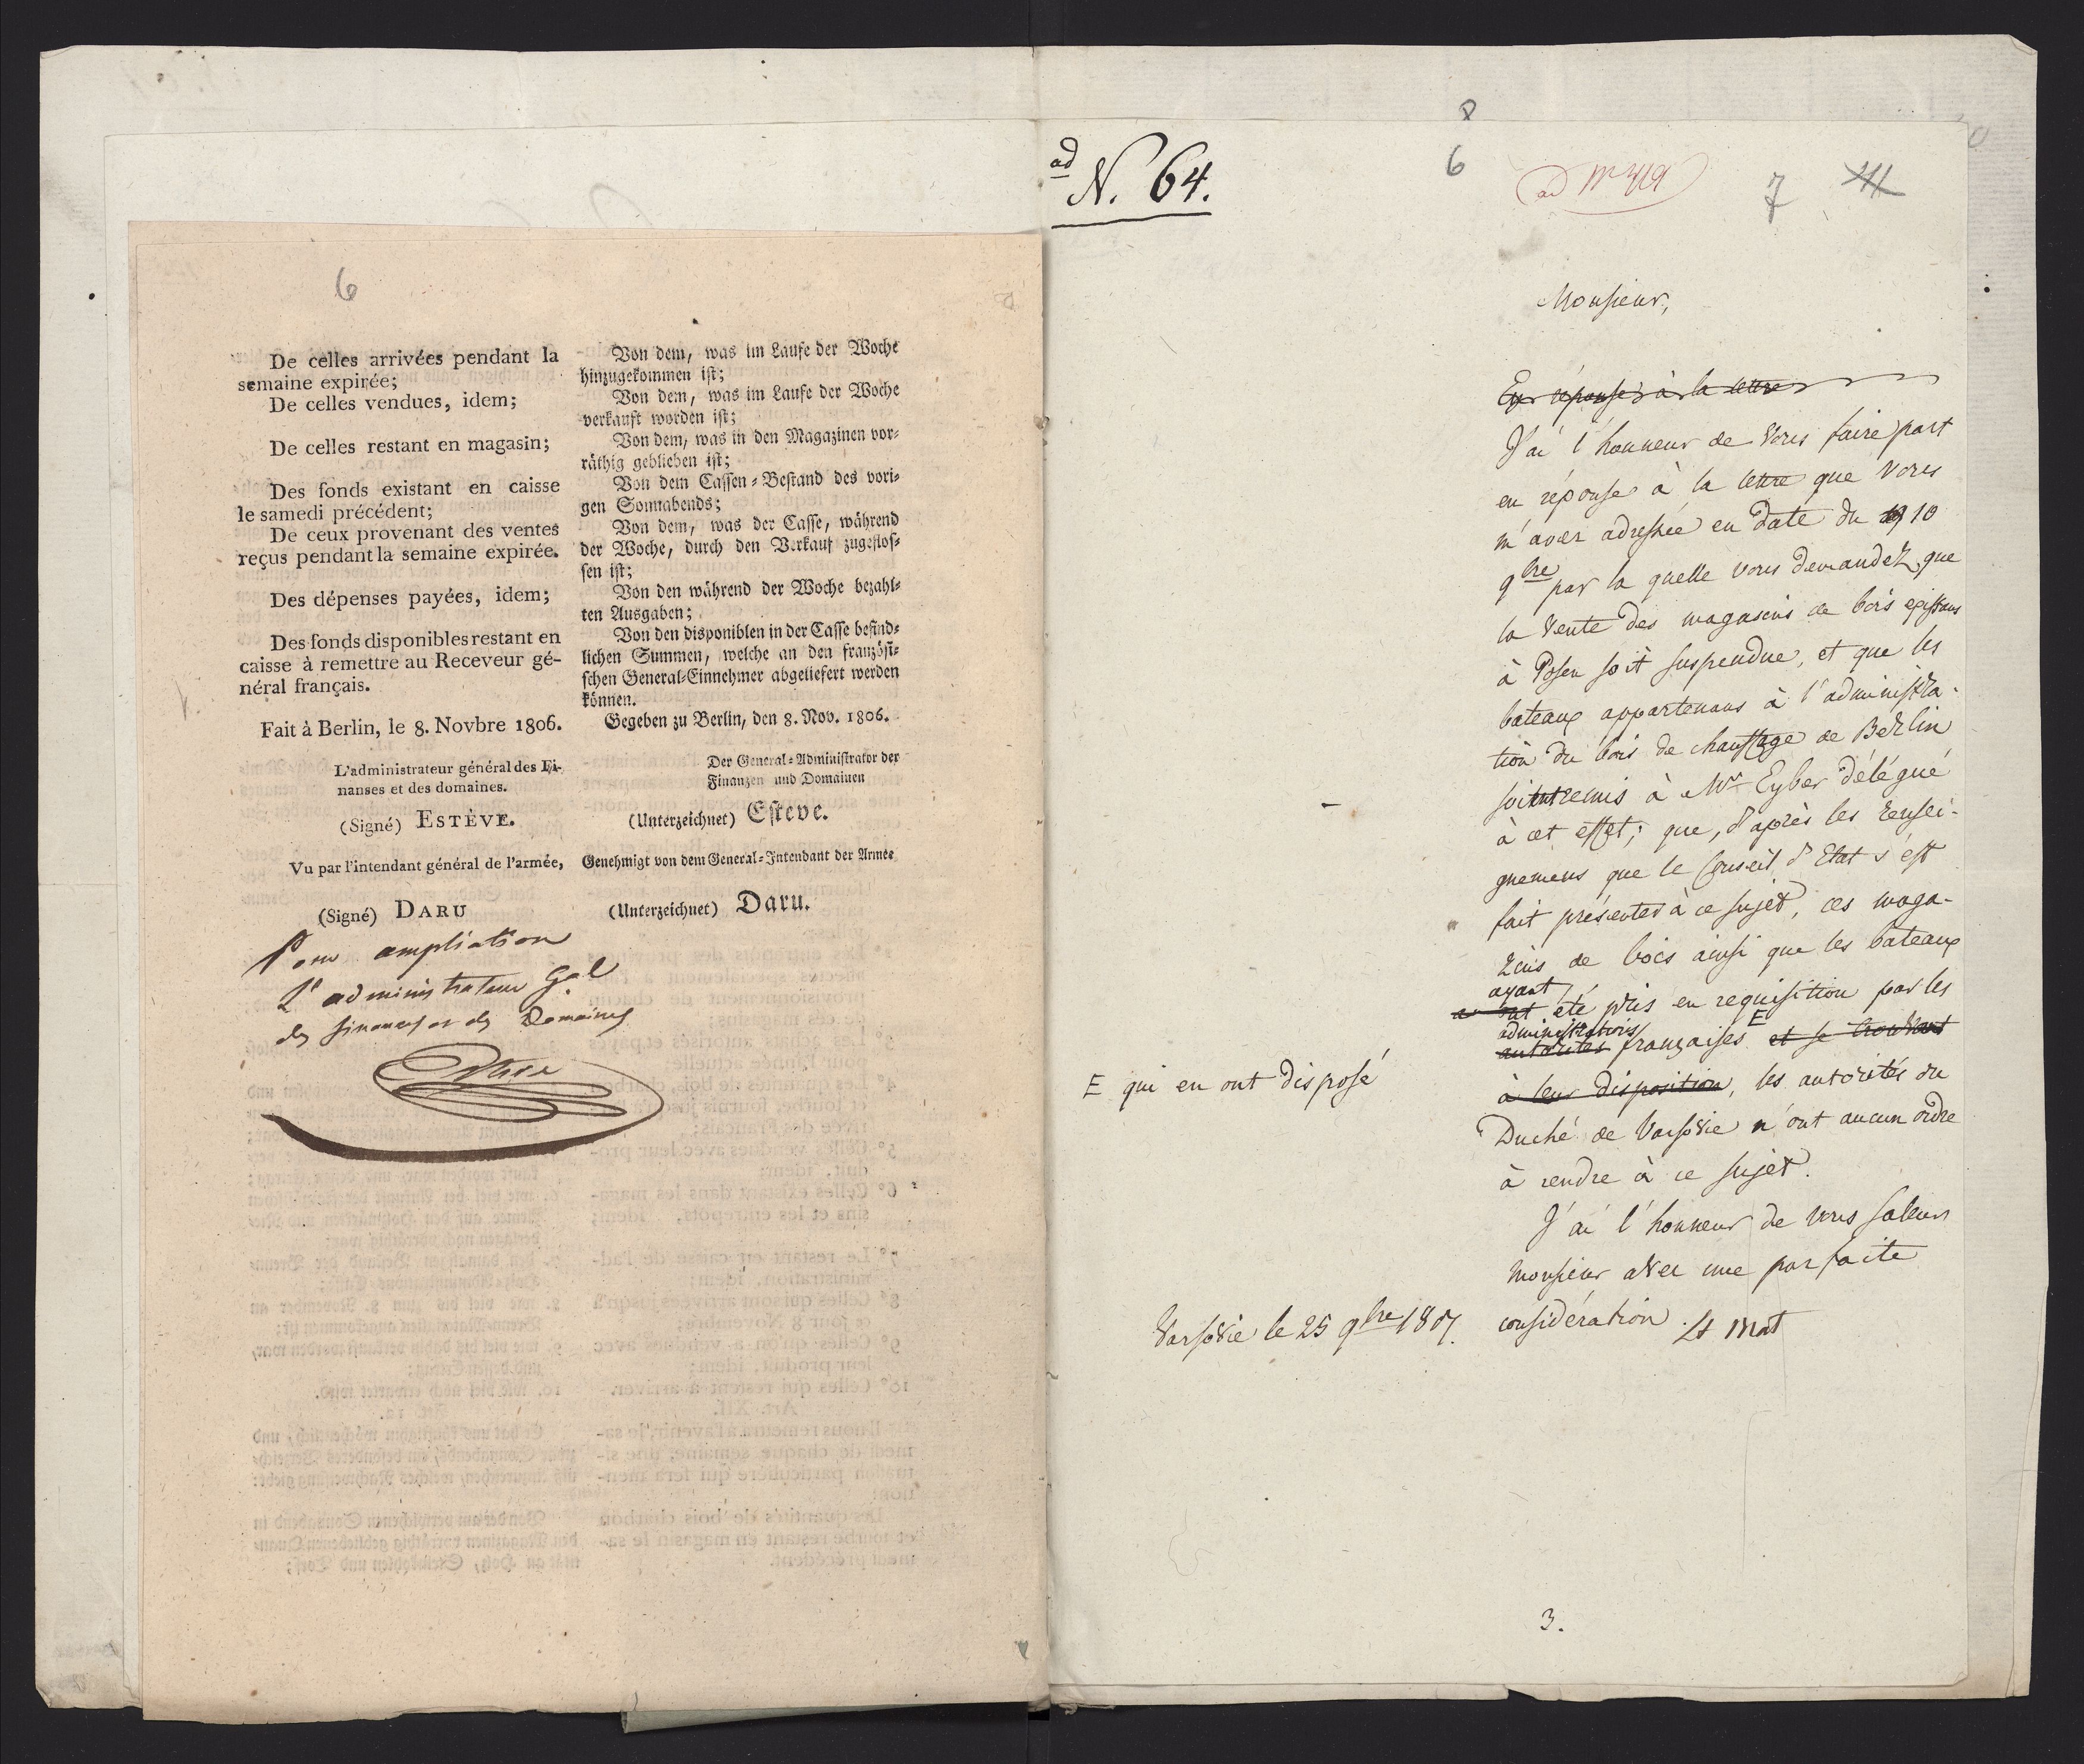 6
De celles arrivées pendant la
semaine expirée;
De celles vendues, idem;
De celles restant en magasin;
Des fonds existant en caisse
le samedi précédent;
De ceux provenant des ventes
reçus pendant la semaine expirée.
Des dépenses payées, idem;
Des fonds disponibles restant en
caisse à remettre au Receveur gé-
néral français.
Fait à Berlin, le 8. Novbre 1806.
L'administrateur général des Fi-
nanses et des domaines.
(Signé) ESTÈVE.
Vu par l'intendant général de l'armée,
(Signé) DARU
Von dem, was im Laufe der Woche
hinzugekommen ist;
Von dem, was im Laufe der Woche
verkauft worden ist;
Von dem, was in den Magazinen vor-
räthig geblieben ist;
Von dem Cassen-Bestand des vori-
gen Sonnabends;
Von dem, was der Casse, während
der Woche, durch den Verkauf zugeflos-
sen ist;
Von den während der Woche bezahl-
ten Ausgaben;
Von den disponiblen in der Casse befind-
lichen Summen, welche an den französi-
schen General-Einnehmer abgeliefert werden
können.
Gegeben zu Berlin, den 8. Nov. 1806.
Der General-Administrator der
Finanzen und Domainen
(Unterzeichnet) Esteve.
Genehmigt von dem General-Intendant der Armee
(Unterzeichnet) Daru.
Pour ampliation
L'administrateur Gal
des finances et des Domaines
Estève
ad N. 64.
8
6
ad
7
Monsieur,
En réponse à la lettre
J'ai l'honneur de Vous faire part
en réponse à la lettre que Vous
m'avez adressée en date du 10
9bre par la quelle vous demandez que
la Vente des magasins de bois existans
à Posen soit suspendue, et que les
bateaux appartenans à l'administra-
tion du bois de chauffage de Berlin
soient remis à Mr Eyber délégué
à cet effet; que, d'après les Rensei-
gnemens que le Conseil d'Etat s'est
fait présenter à ce sujet, ces maga-
zins de bois ainsi que les bateaux
ayant
ont été pris en requisition par les
administrations E
autorités françaises et se trouvant
à leur disposition, les autorités du
Duché de Varsovie n'ont aucun ordre
à rendre à ce sujet.
J'ai l'honneur de vous saluer
Monsieur avec une parfaite
considération.
E qui en ont disposé
Varsovie le 25 9bre 1807.
3.